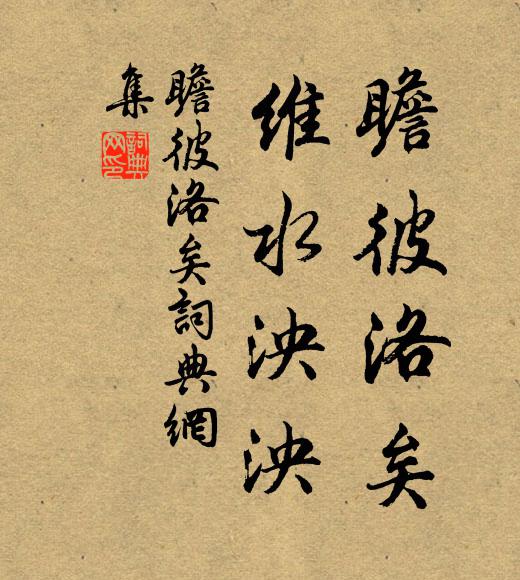 瞻彼洛矣
維水泱泱
瞻彼洛矣詞典網
集
詞典
网印